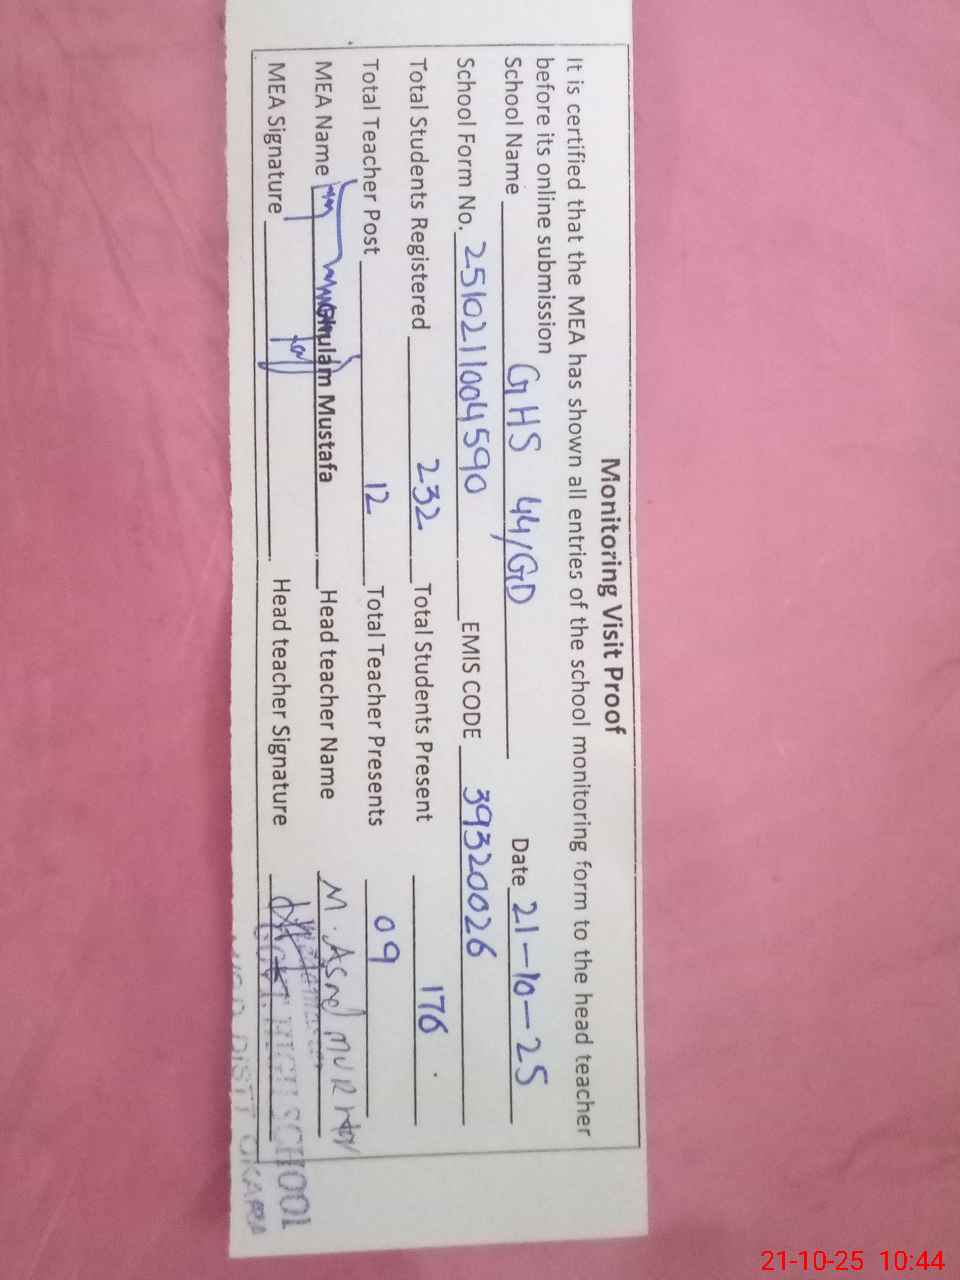 Monitoring Visit Proof
It is certified that the MEA has shown all entries of the school monitoring form to the head teacher
before its online submission
School Name GHS 44/GD Date 21-10-25
School Form No. 2510211004590 EMIS CODE 39320026
Total Students Registered 232 Total Students Present 176
Total Teacher Post 12 Total Teacher Presents 09
MEA Name Ghulam Mustafa Head teacher Name M. Asad
MEA Signature Head teacher Signature
GOVT HIGH SCHOOL
DISTT OKARA
21-10-25 10:44